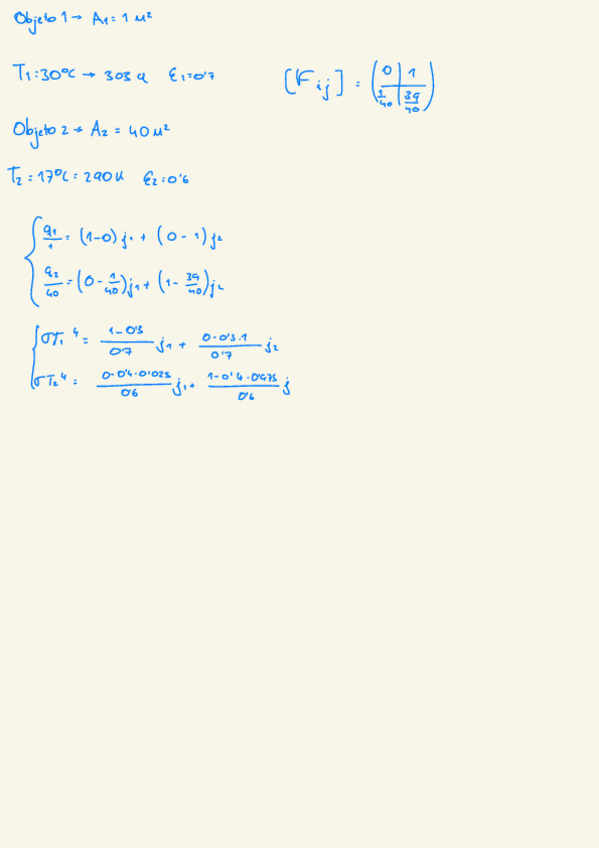 Objeto 1 → A₁ = 1 m²
T₁ : 30ºC → 303 k ε₁ = 0'7
[F ij] = (0 | 1
1/40 | 39/40)
Objeto 2 → A₂ = 40 m²
T₂ = 17ºC = 290 k ε₂ = 0'6
q₁/1 = (1-0) j₁ + (0 - 1) j₂
q₂/40 = (0 - 1/40) j₁ + (1 - 39/40) j₂
σT₁⁴ = (1-0'3)/0'7 j₁ + (0-0'3·1)/0'7 j₂
σT₂⁴ = (0-0'4·0'025)/0'6 j₁ + (1-0'4·0'975)/0'6 j